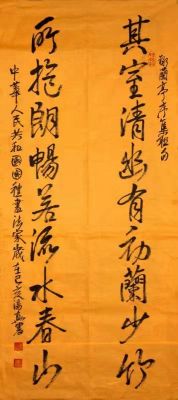 蘭亭序集聯句
其室清幽有初蘭少竹
所抱朗暢若流水春山
中華人民共和國國禮書法家歲